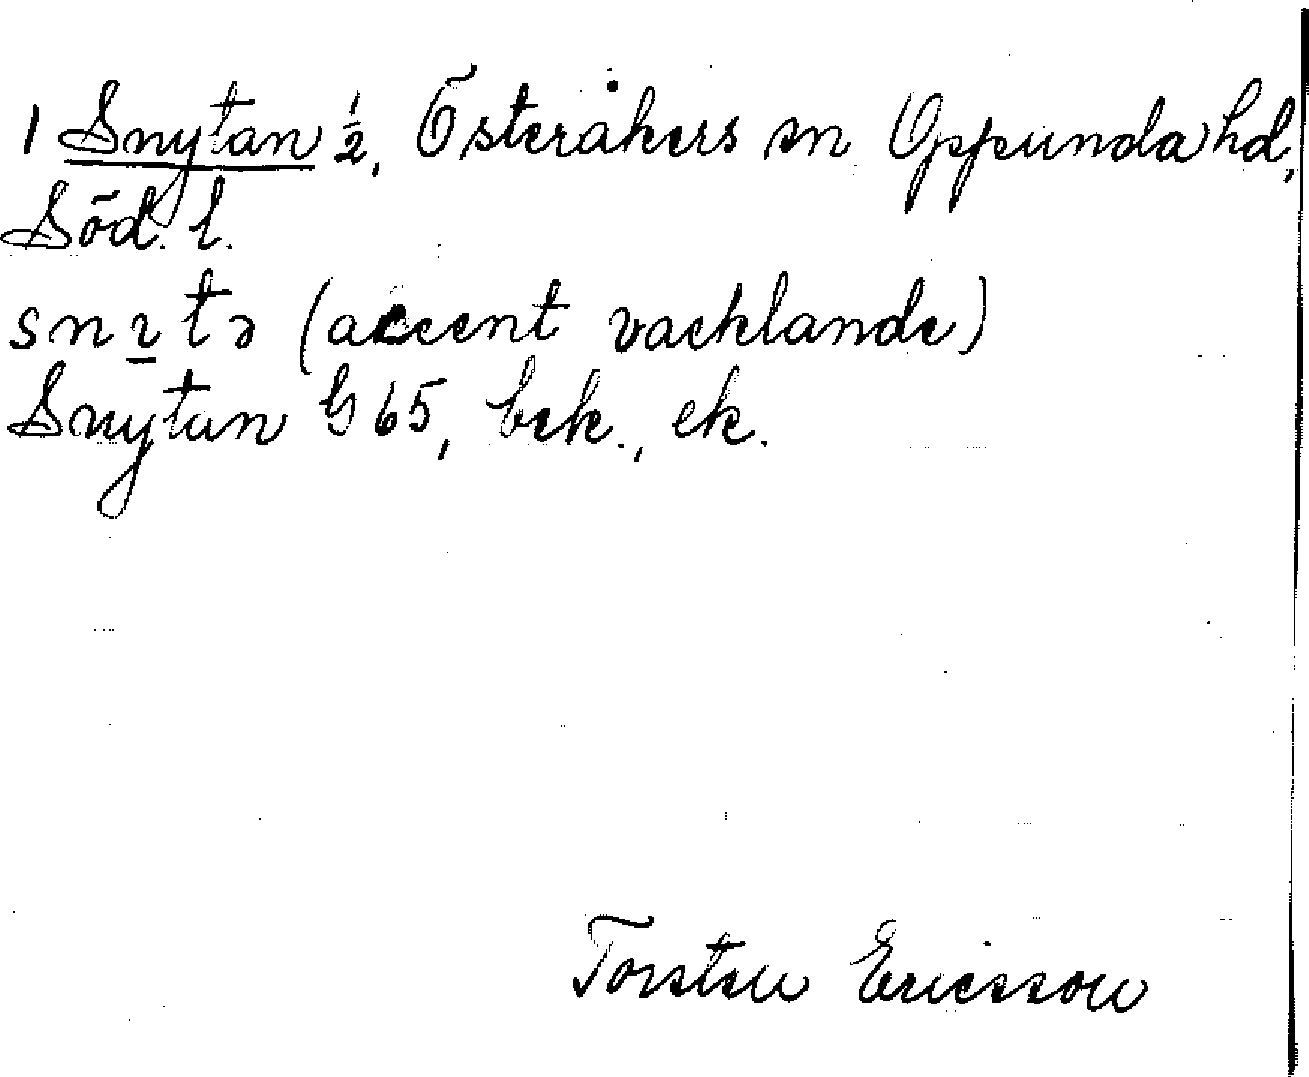 1 Snytan ½, Österåkers sn Oppunda hd,
Söd. l.
snɩ̲tə (accent vacklande)
Snytan G 65, bek., ek.
Torsten Ericsson